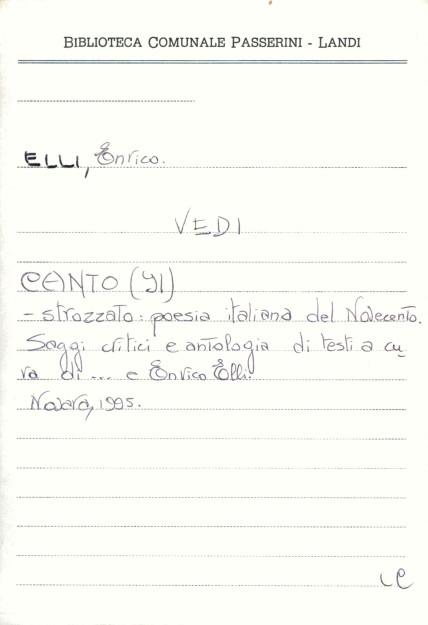 BIBLIOTECA COMUNALE PASSERINI - LANDI
ELLI, Enrico.
VEDI
CANTO (Il)
- strozzato: poesia italiana del Novecento.
Saggi critici e antologia di testi a cu
ra di ... e Enrico Elli.
Novara, 1995.